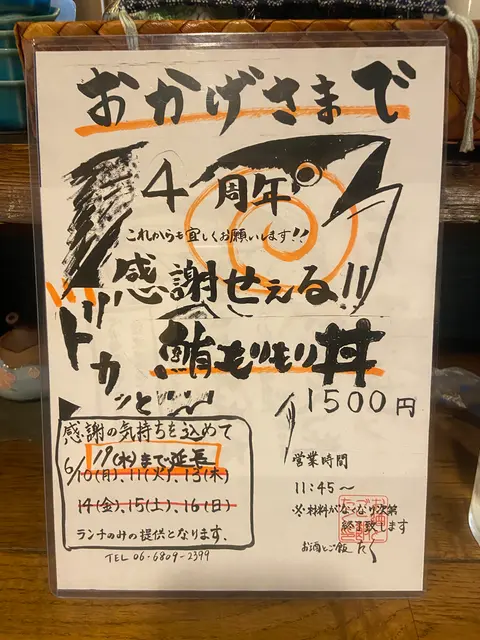 おかげさまで
4周年
これからも宜しくお願いします!!
感謝せぇる!!
ドカッと
鮪もりもり丼
1500円
感謝の気持ちを込めて
19(水)まで延長
6/10(月)、11(火)、13(木)
14(金)、15(土)、16(日)
ランチのみの提供となります.
TEL 06-6809-2399
営業時間
11:45〜
※材料がなくなり次第
終了致します
お酒とご飯 たく